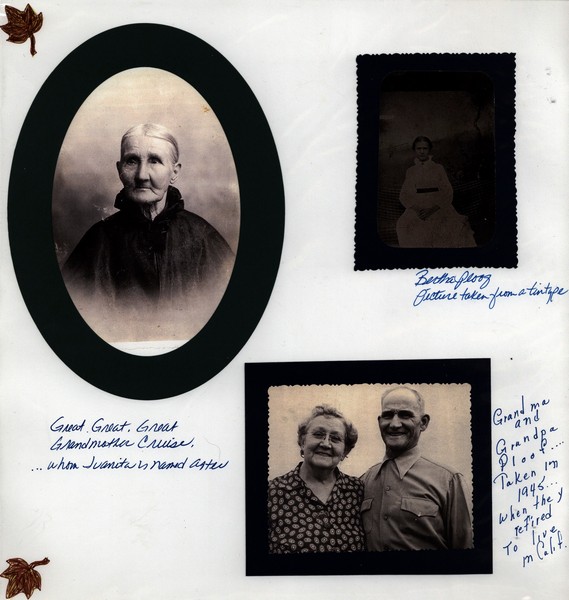 Bertha Ploog
Picture taken from a tintype
Great, Great, Great
Grandmother Cruise,
...whom Juanita is named after
Grandma
and
Grandpa
Ploof....
Taken in
1945...
when they
retired
to live
in Calif.